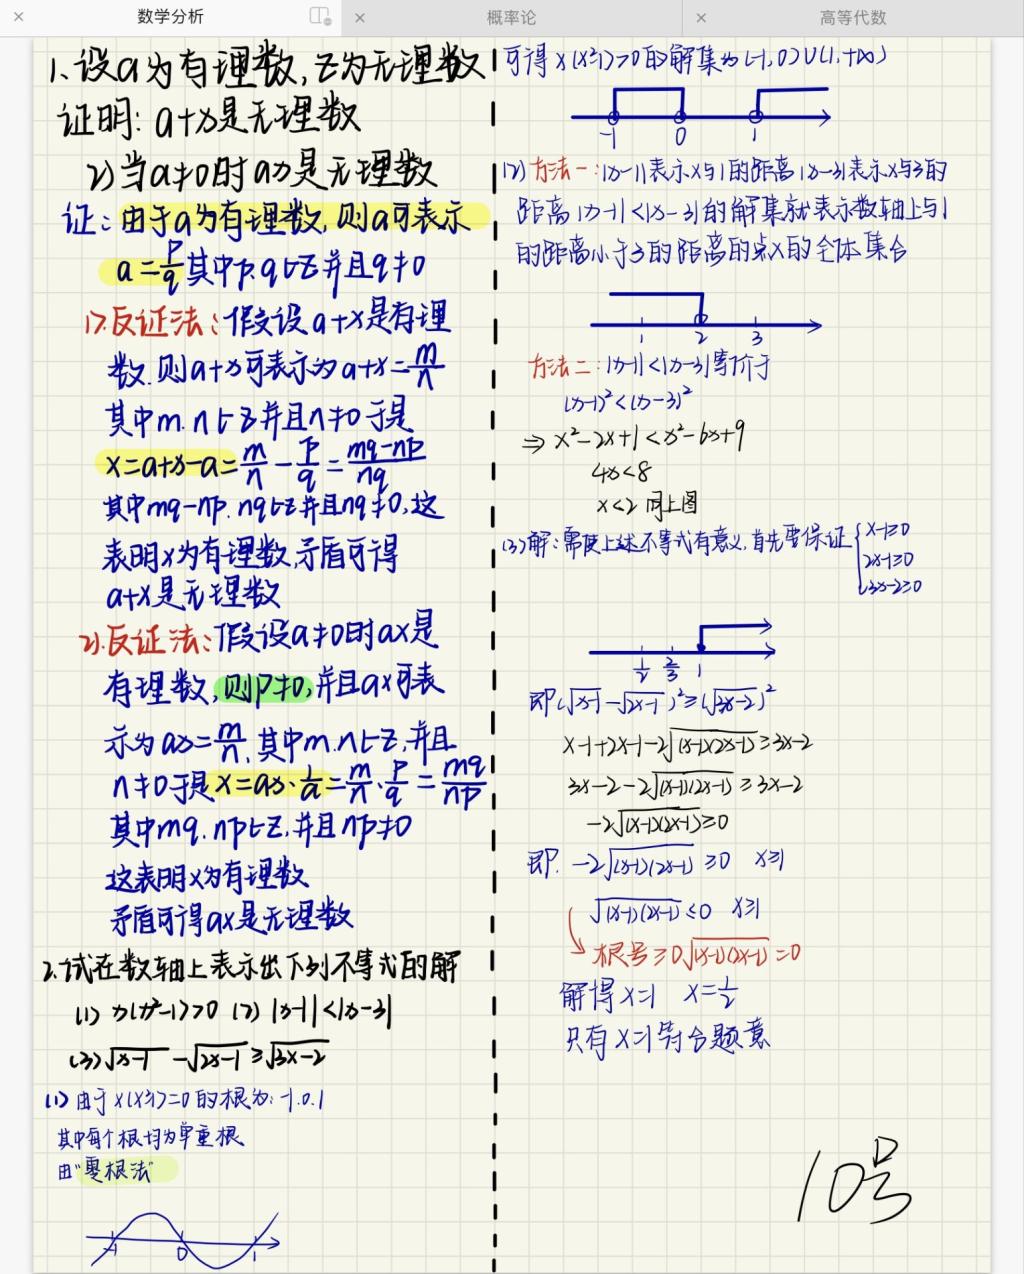 数学分析
概率论
高等代数
1、设a为有理数,x为无理数
证明: a+x是无理数
2) 当a≠0时ax是无理数
证: 由于a为有理数,则a可表示
a=p/q其中p.q∈Z并且q≠0
1).反证法:假设a+x是有理
数.则a+x可表示为a+x=m/n
其中m.n∈Z并且n≠0于是
x=a+x-a=m/n-p/q=mq-np/nq
其中mq-np.nq∈Z并且nq≠0,这
表明x为有理数,矛盾可得
a+x是无理数
2).反证法:假设a≠0时ax是
有理数,则p≠0,并且ax可表
示为ax=m/n.其中m.n∈Z,并且
n≠0于是x=ax·1/a=m/n·p/q=mq/np
其中mq.np∈Z.并且np≠0
这表明x为有理数
矛盾可得ax是无理数
2.试在数轴上表示出下列不等式的解
(1) x(x²-1)>0 (2) |x-1|<|x-3|
(3)√x-1 -√2x-1≥√3x-2
(1) 由于x(x²-1)=0的根为:-1.0.1
其中每个根均为单重根
由"零根法"
-1 0 1
可得x(x²-1)>0的解集为(-1,0)∪(1,+∞)
-1 0 1
(2) 方法一:|x-1|表示x与1的距离|x-3|表示x与3的
距离|x-1|<|x-3|的解集就表示数轴上与1
的距离小于3的距离的点x的全体集合
1 2 3
方法二:|x-1|<|x-3|等价于
(x-1)²<(x-3)²
⇒ x²-2x+1<x²-6x+9
4x<8
x<2 同上图
(3)解:需使上述不等式有意义,首先要保证{x-1≥0
2x-1≥0
3x-2≥0
1/2 2/3 1
即(√x-1-√2x-1)²≥(√3x-2)²
x-1+2x-1-2√(x-1)(2x-1)≥3x-2
3x-2-2√(x-1)(2x-1)≥3x-2
-2√(x-1)(2x-1)≥0
即. -2√(x-1)(2x-1)≥0 x≥1
√(x-1)(2x-1)≤0 x≥1
根号≥0√(x-1)(2x-1)=0
解得x=1 x=1/2
只有x=1符合题意
10号